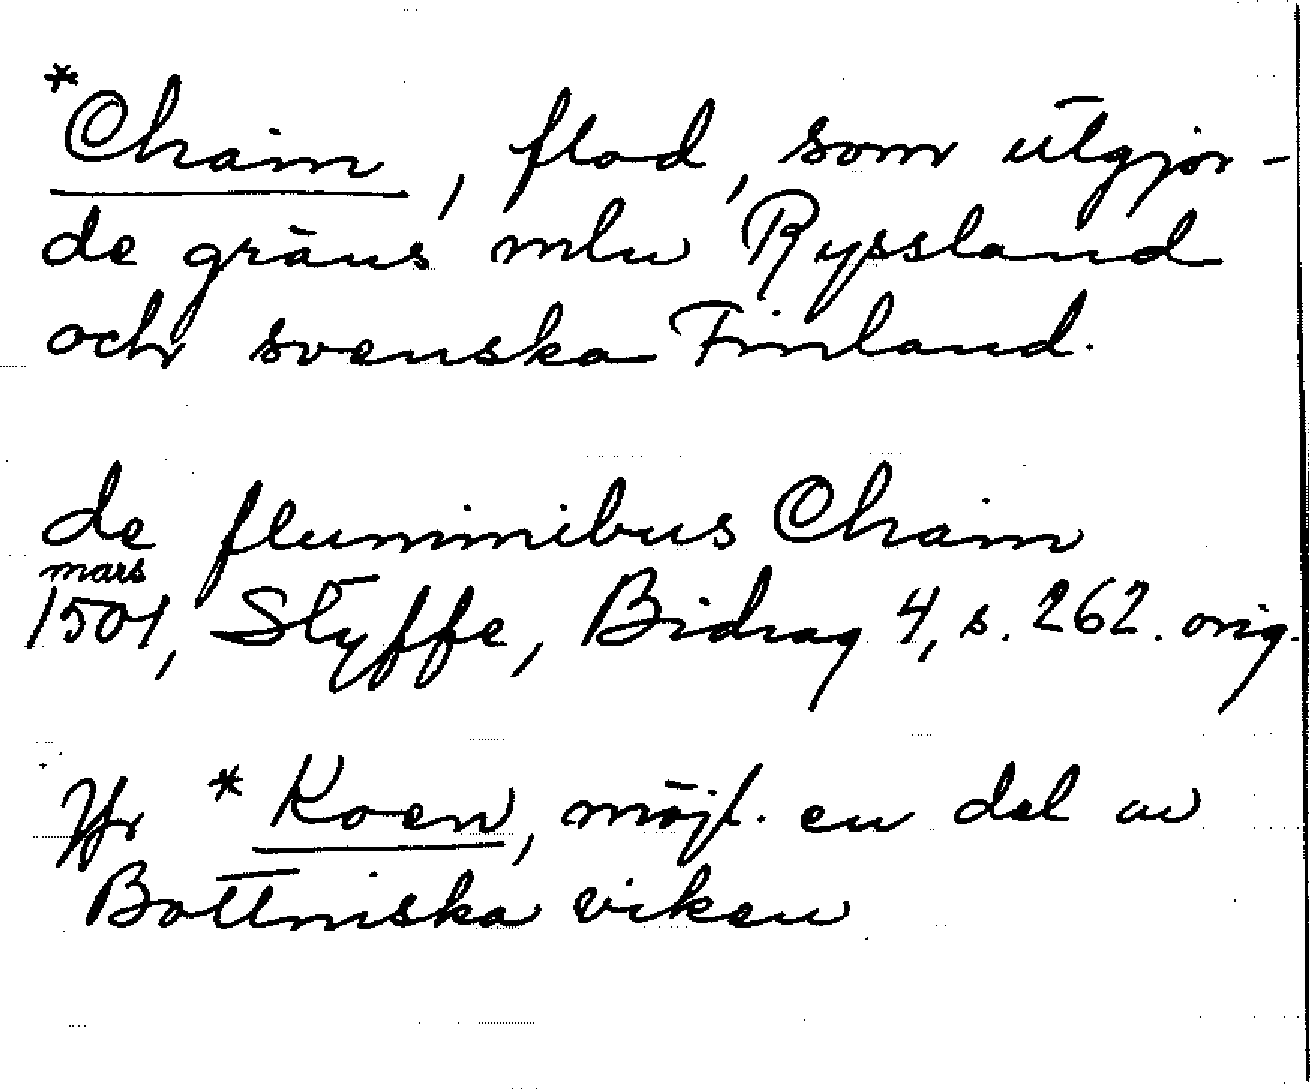 *Chaim, flod, som utgjor-
de gräns mlu Ryssland
och svenska Finland.
de fluminibus Chaim
mars
1501, Styffe, Bidrag 4, s. 262. orig.
Jfr *Koen, möjl. en del av
Bottniska viken